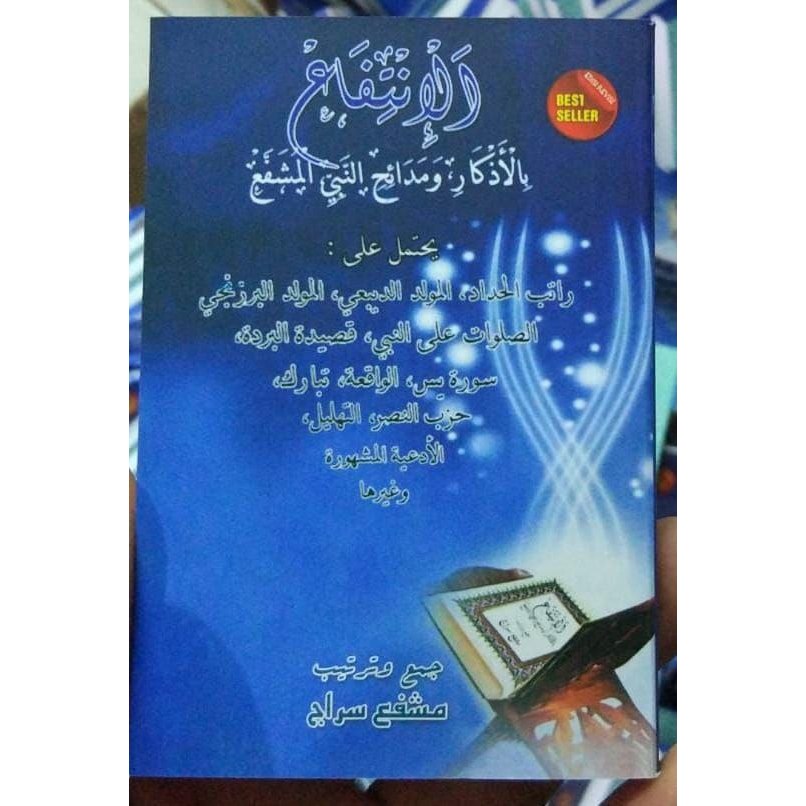 اَلْإِنْتِفَاعْ
EDISI REVISI
BEST
SELLER
بِالْأَذْكَارِ وَمَدَائِحِ النَّبِيِّ الْمُشَفَّعْ
يحتمل على :
راتب الحداد، المولد الديبعي، المولد البرزنجي
الصلوات على النبي، قصيدة البردة،
سورة يس، الواقعة، تبارك،
حزب النصر، التهليل،
الأدعية المشهورة
وغيرها
الإنتفاع
جمع وترتيب
مشفع سراج